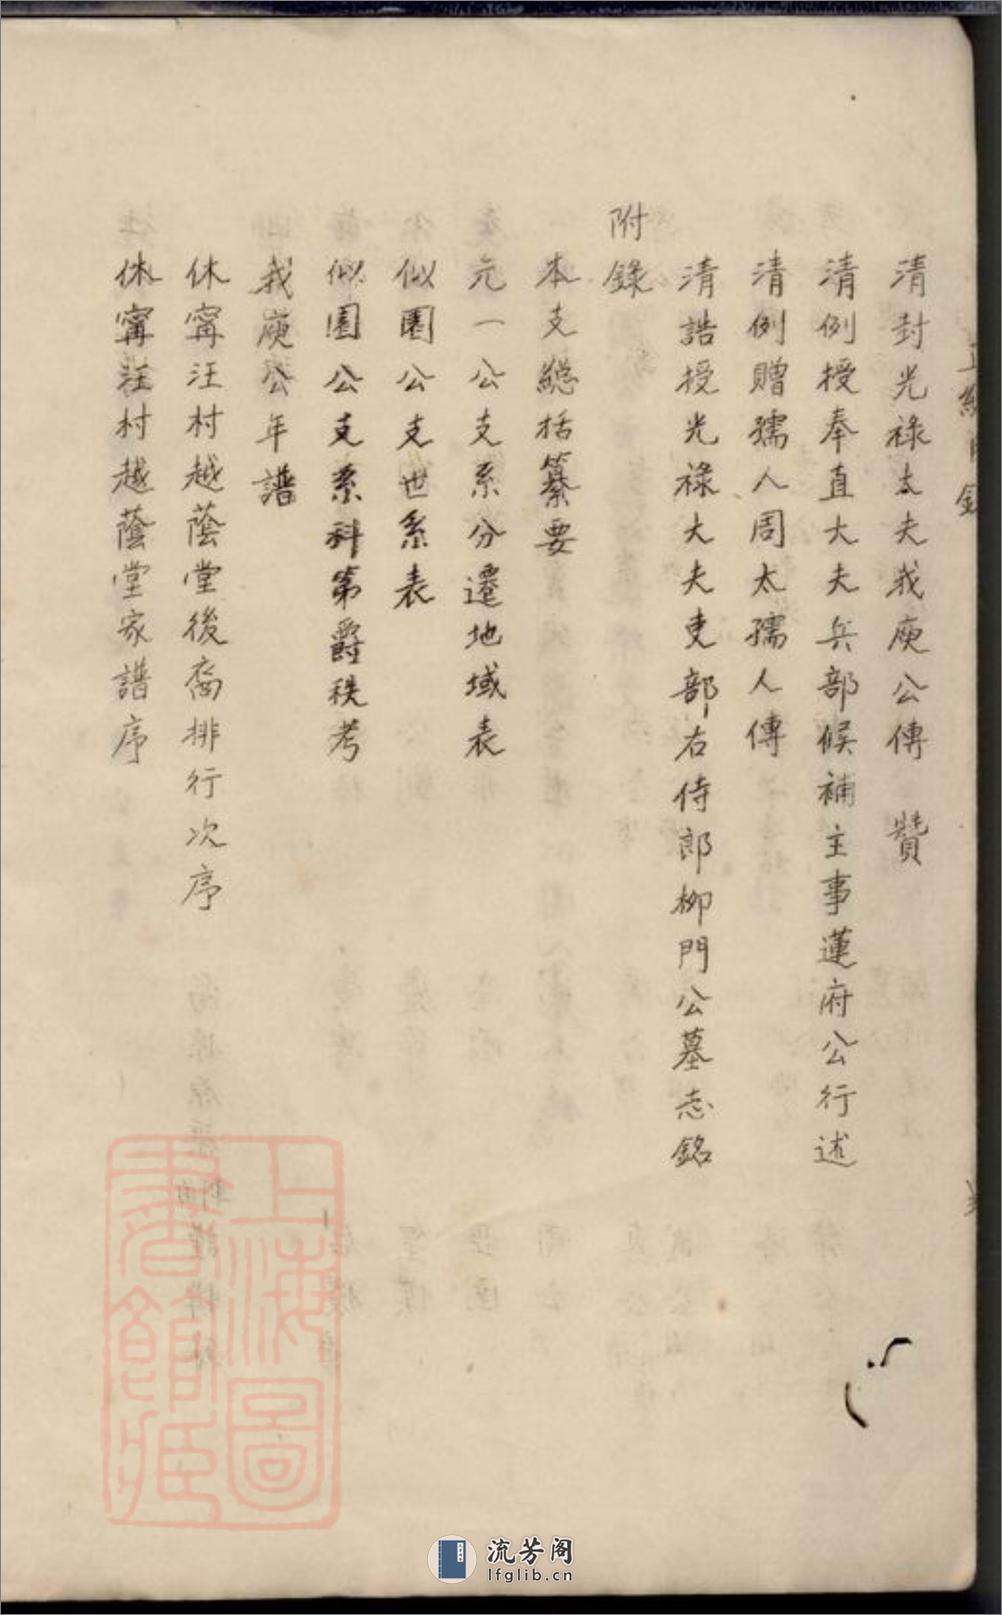 清封光祿大夫我庾公傳　贊
清例授奉直大夫兵部候補主事蓮府公行述
清例贈孺人周太孺人傳
清誥授光祿大夫吏部右侍郎柳門公墓志銘
附錄
本支總括纂要
元一公支系分遷地域表
似園公支世系表
似園公支系科第爵秩考
我庾公年譜
休甯汪村越蔭堂後裔排行次序
休甯汪村越蔭堂家譜序
上海圖書館藏
流芳阁
lfglib.cn